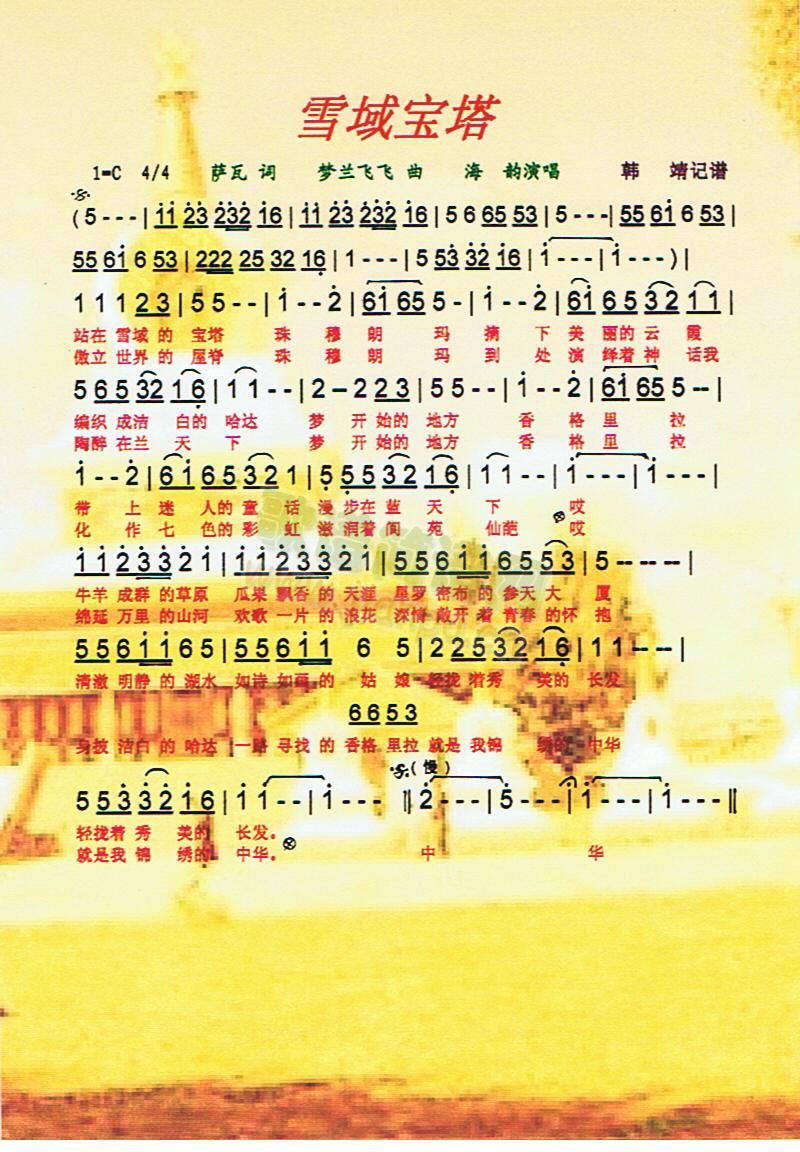 雪域宝塔
1=C 4/4 萨瓦 词 梦兰飞飞 曲 海 韵演唱 韩 靖记谱
(5 - - - | i i 2 3 2 3 2 i 6 | i i 2 3 2 3 2 i 6 | 5 6 6 5 5 3 | 5 - - - | 5 5 6 i 6 5 3 |
5 5 6 i 6 5 3 | 2 2 2 2 5 3 2 1 6 | 1 - - - | 5 5 3 3 2 i 6 | i - - - | i - - - ) |
1 1 1 2 3 | 5 5 - - | i - - 2 | 6 i 6 5 5 - | i - - 2 | 6 i 6 5 3 2 1 1 |
站在 雪域 的 宝塔 珠 穆 朗 玛 摘 下 美 丽的 云 霞
傲立 世界 的 屋脊 珠 穆 朗 玛 到 处 演 绎着 神 话我
5 6 5 3 2 1 6 | 1 1 - - | 2 - 2 2 3 | 5 5 - - | i - - 2 | 6 i 6 5 5 - - |
编织 成洁 白的 哈达 梦 开 始的 地方 香 格 里 拉
陶醉 在兰 天 下 梦 开 始的 地方 香 格 里 拉
i - - 2 | 6 i 6 5 3 2 1 | 5 5 5 3 2 1 6 | 1 1 - - | i - - - | i - - - |
带 上 迷 人的 童 话 漫 步在 蓝 天 下 哎
化 作 七 色的 彩 虹 滋 润着 阆 苑 仙葩 哎
i i 2 3 3 2 i | i i 2 3 3 2 i | 5 5 6 i i 6 5 5 3 | 5 - - - - |
牛羊 成群 的 草原 瓜果 飘香 的 天涯 星罗 密布 的 参天 大 厦
绵延 万里 的 山河 欢歌 一片 的 浪花 深情 敞开 着 青春 的怀 抱
5 5 5 6 i i 6 5 | 5 5 5 6 i i 6 5 | 2 2 5 3 2 1 6 | 1 1 - - |
清澈 明静 的 湖水 如诗 如画 的 姑 娘 轻拢 着秀 美的 长发
6 6 5 3
身披 洁白 的 哈达 一路 寻找 的 香格 里拉 就是 我锦 绣的 中华
(慢)
5 5 3 3 2 i 6 | i i - - | i - - - ‖ 2 - - - | 5 - - - | i - - - | i - - - ‖
轻拢着 秀 美的 长发。
就是我 锦 绣的 中华。 中 华